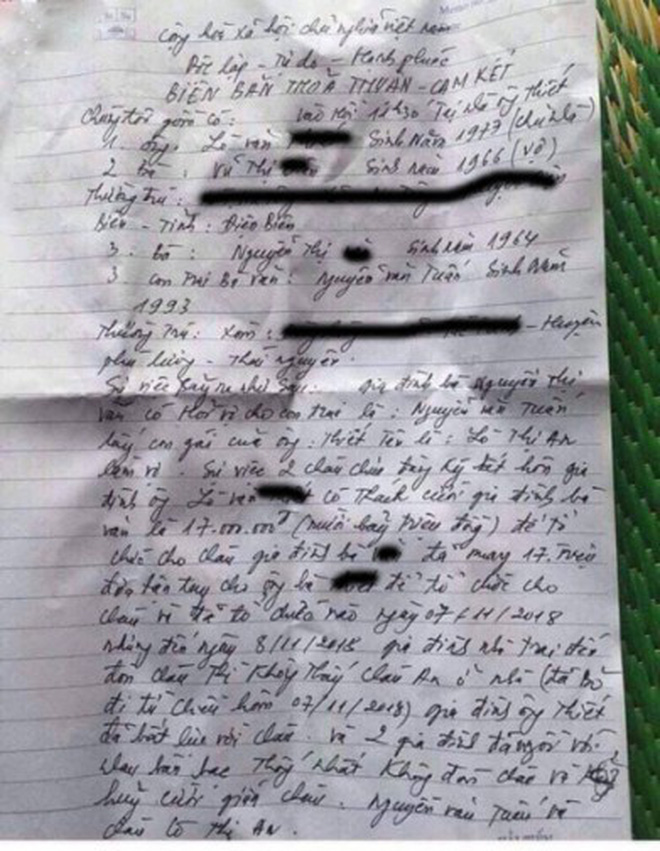 Cộng hoà xã hội chủ nghĩa việt nam
Độc lập - Tự do - Hạnh phúc
BIÊN BẢN THOẢ THUẬN - CAM KẾT
Chúng tôi gồm có: vào hồi 12h30 Tại nhà ông Thiết
1. ông: Lò văn Sinh Năm 1973 (chủ hộ)
2 Bà: Vũ Thị Sinh năm 1966 (vợ)
Thường trú:
Biên - Tỉnh: Điện Biên
3. Bà: Nguyễn Thị Sinh năm 1964
3 con Trai Bà Vân: Nguyễn văn Tuấn Sinh Năm
1993
Thường Trú: Xóm: - Huyện
phú lương - Thái nguyên.
Sự việc Sảy ra như Sau: gia đình bà Nguyễn Thị
Vân có Hỏi vợ cho con trai là: Nguyễn văn Tuấn
lấy con gái của ông: Thiết Tên là: Lò Thị An
làm vợ. Sự việc 2 cháu chưa đăng ký kết hôn gia
đình ông Lò văn có Thách cưới gia đình bà
vân là 17.000.000đ (mười bảy triệu đồng) để tổ
chức cho cháu gia đình bà đã mang 17. triệu
đưa tận tay cho ông bà để tổ chức cho
cháu và đã tổ chức vào ngày 07/11/2018
nhưng đến ngày 8/11/2018 gia đình nhà trai đến
đón cháu Thì Không Thấy cháu An ở nhà (đã Bỏ
đi từ chiều hôm 07/11/2018) gia đình ông Thiết
đã bất lực với cháu. và 2 gia đình đã ngồi với
nhau bàn bạc Thống Nhất Không đón cháu về
huỷ cưới giữa cháu. Nguyễn văn Tuấn và
cháu Lò Thị An.